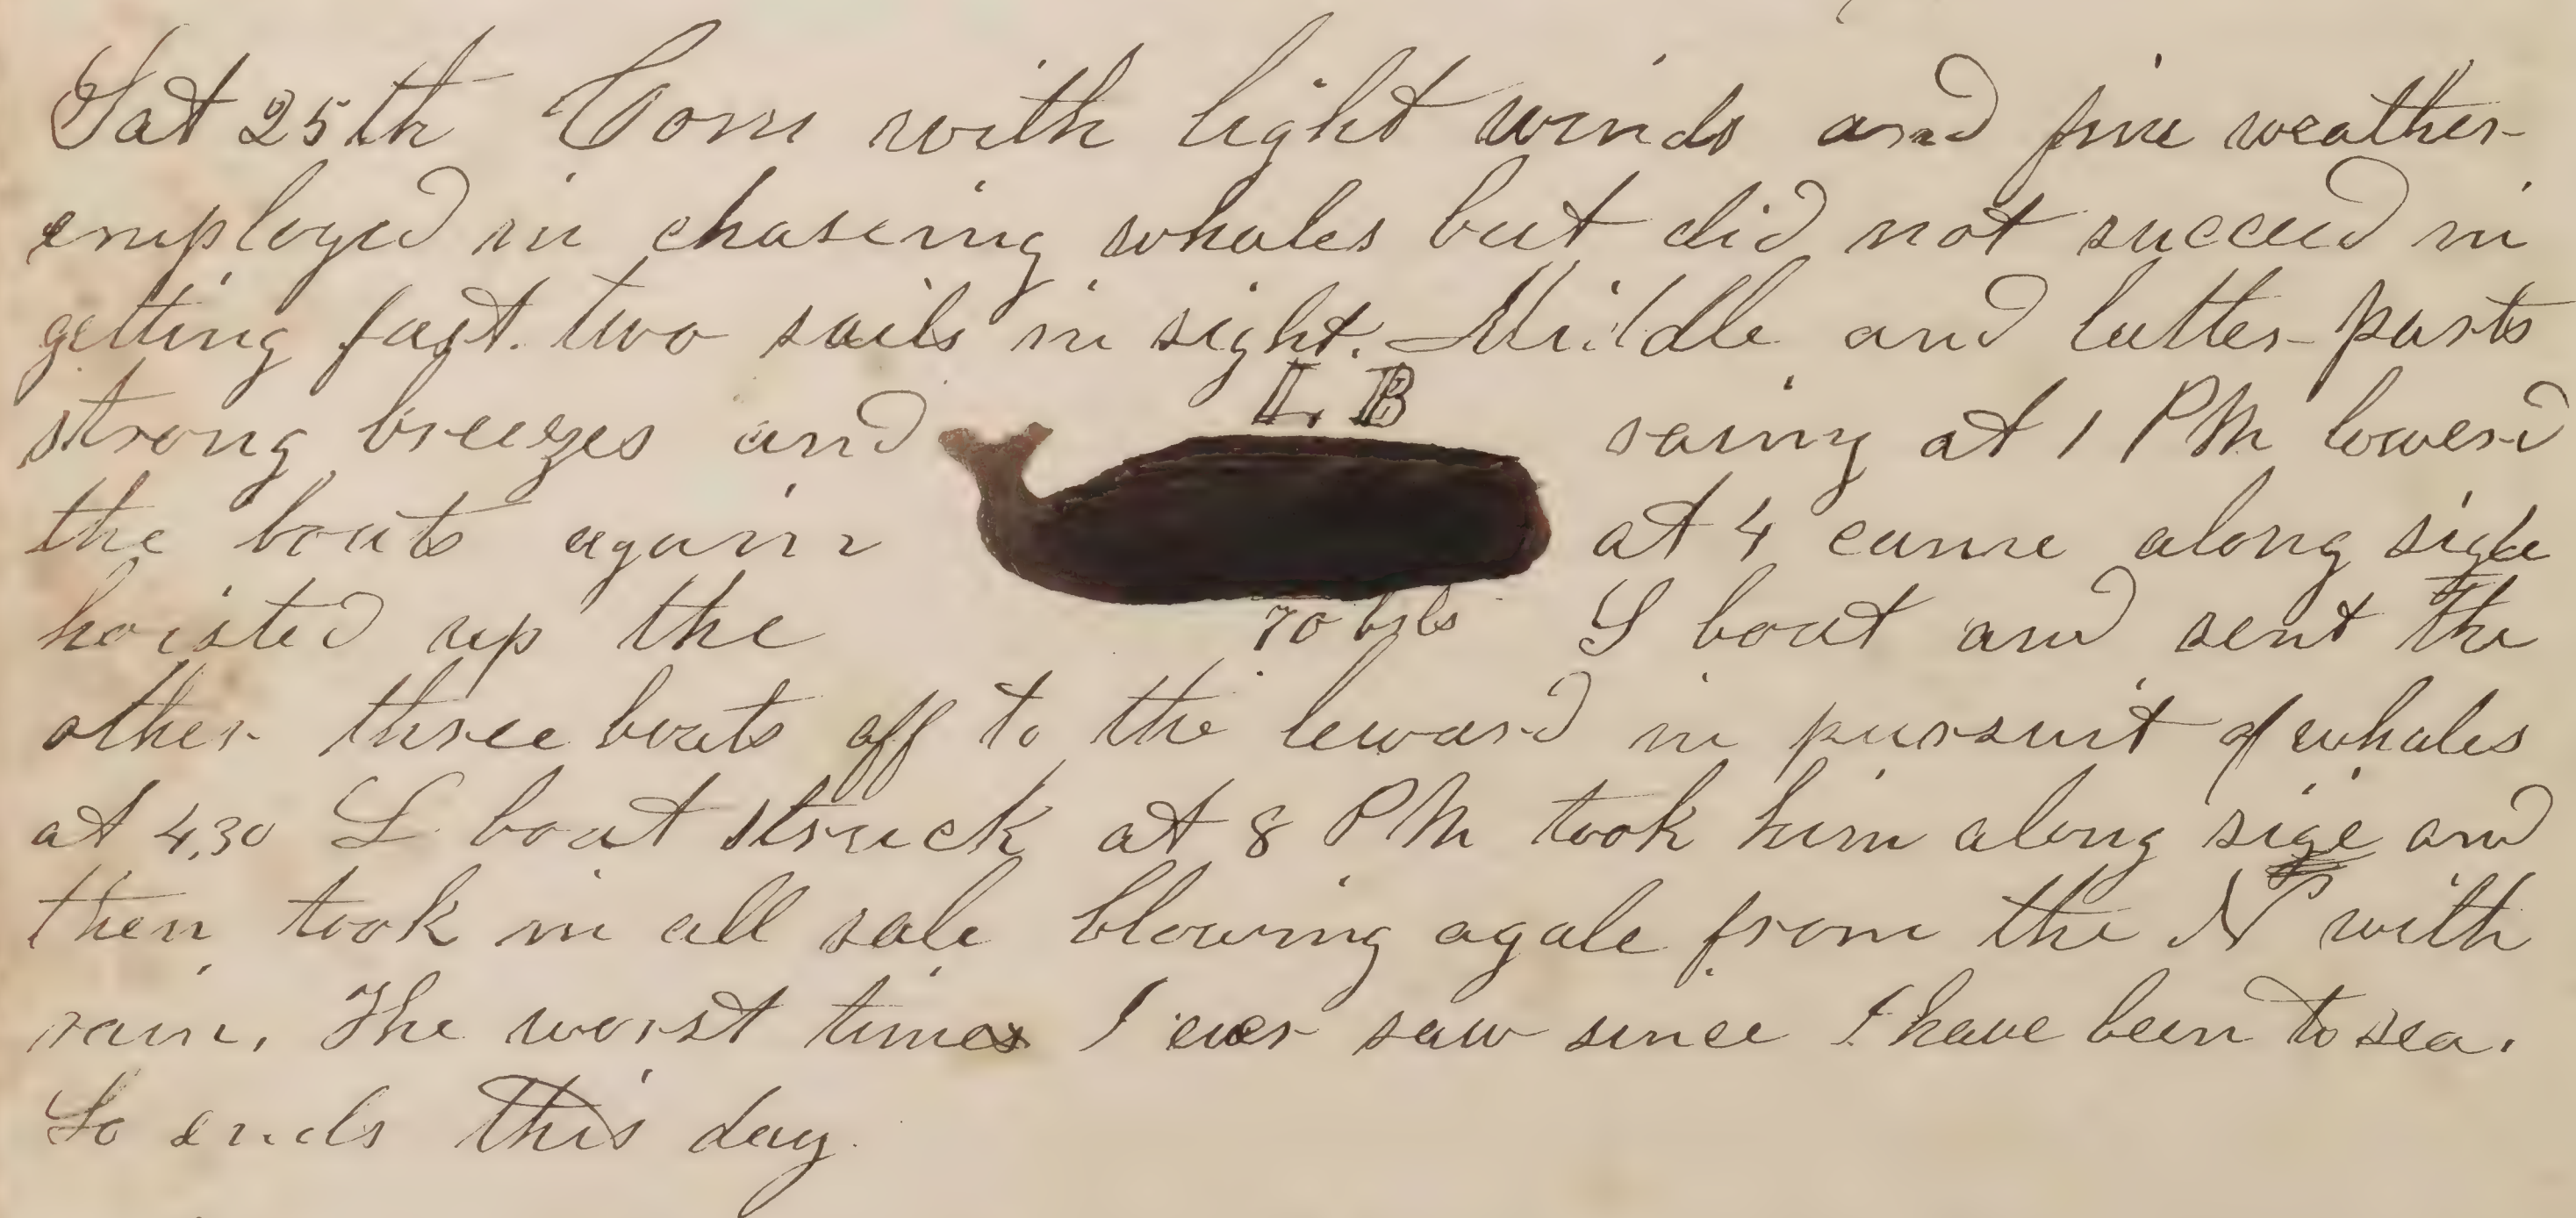 Sat 25th Com with light winds and fine weather
employed in chasing whales but did not succeed in
getting fast. two sails in sight. Middle and latter parts
L. B
strong breezes and raing at 1 PM lowerd
the boats again at 4 came along side
hoisted up the S boat and sent the
70 bbls
other three boats off to the leward in pursuit of whales
at 4,30 L boat struck at 8 PM took him along side and
then took in all sale blowing agale from the N with
rain. The worst times I ever saw since I have been to sea.
So ends this day.